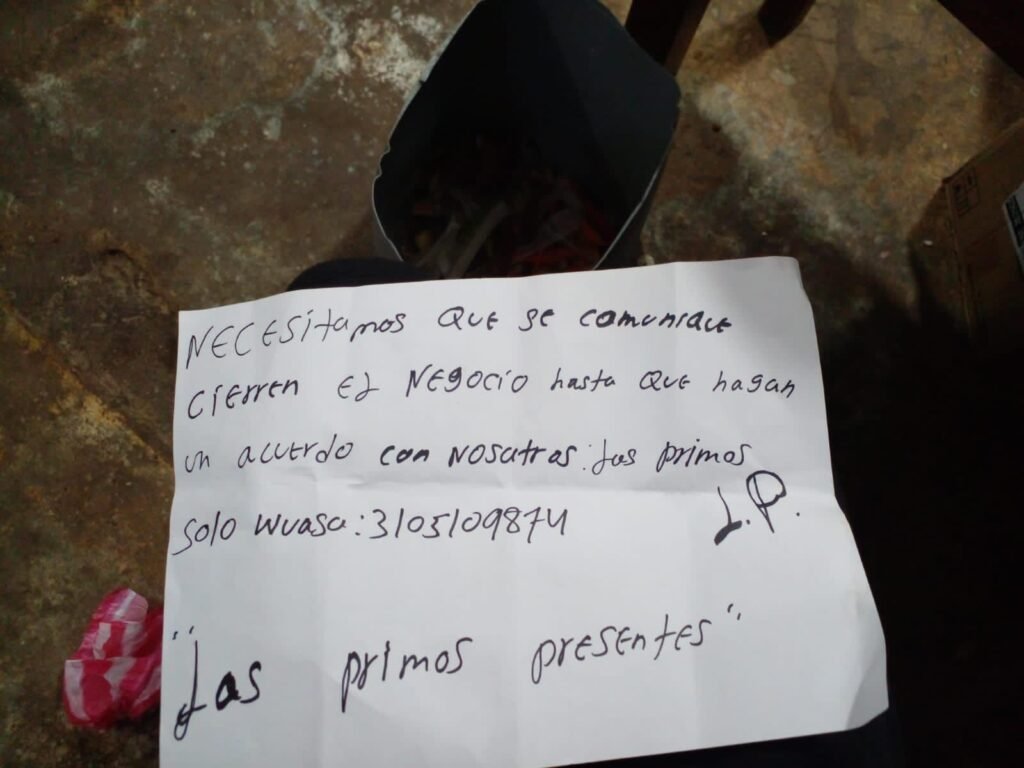 NECESitamos QuE se comuniquE
CiErrEN EL NEGOCIO hasta QuE hagan
un acuerdo con Nosotros: Los primos
Solo Wuasa: 3105109874 L.P.
"Los primos presentes"